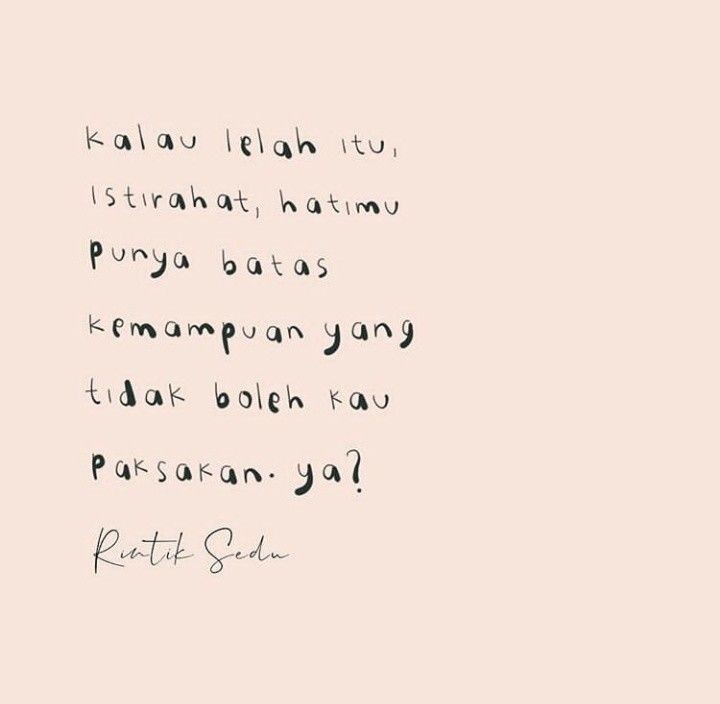 kalau lelah itu,
istirahat, hatimu
punya batas
kemampuan yang
tidak boleh kau
paksakan. ya?
Rintik Sedu